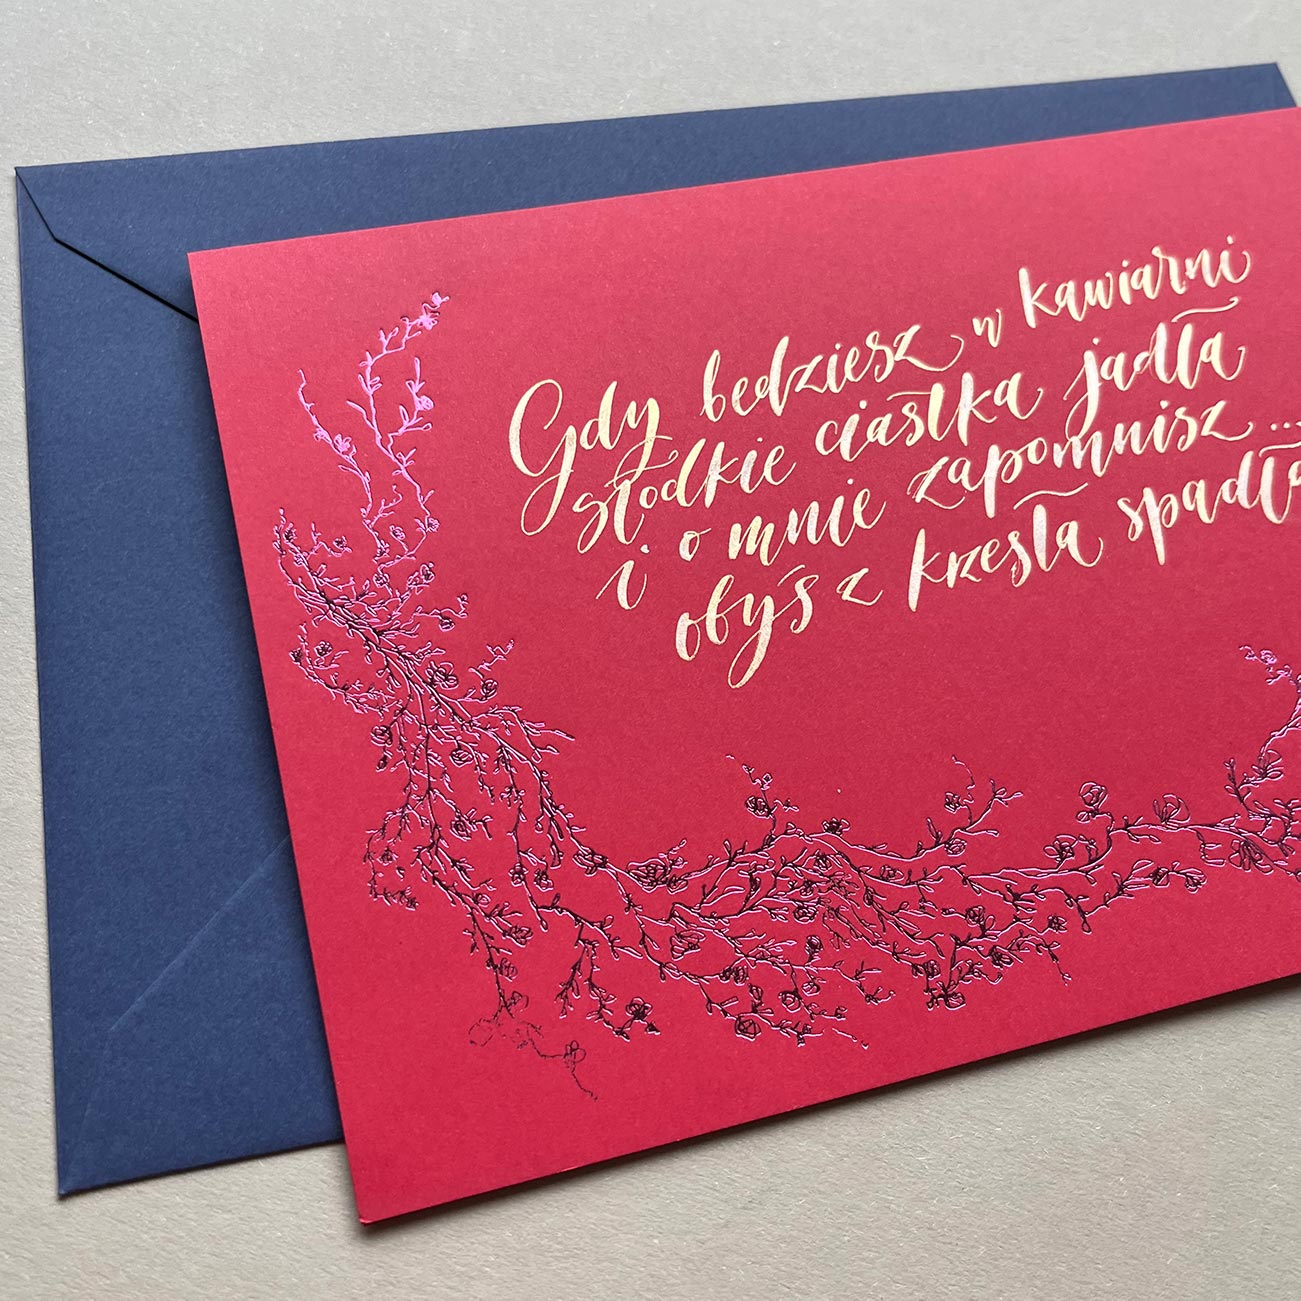 Gdy bedziesz w kawiarni
słodkie ciastka jadła
i o mnie zapomnisz...
obyś z krzesła spadła